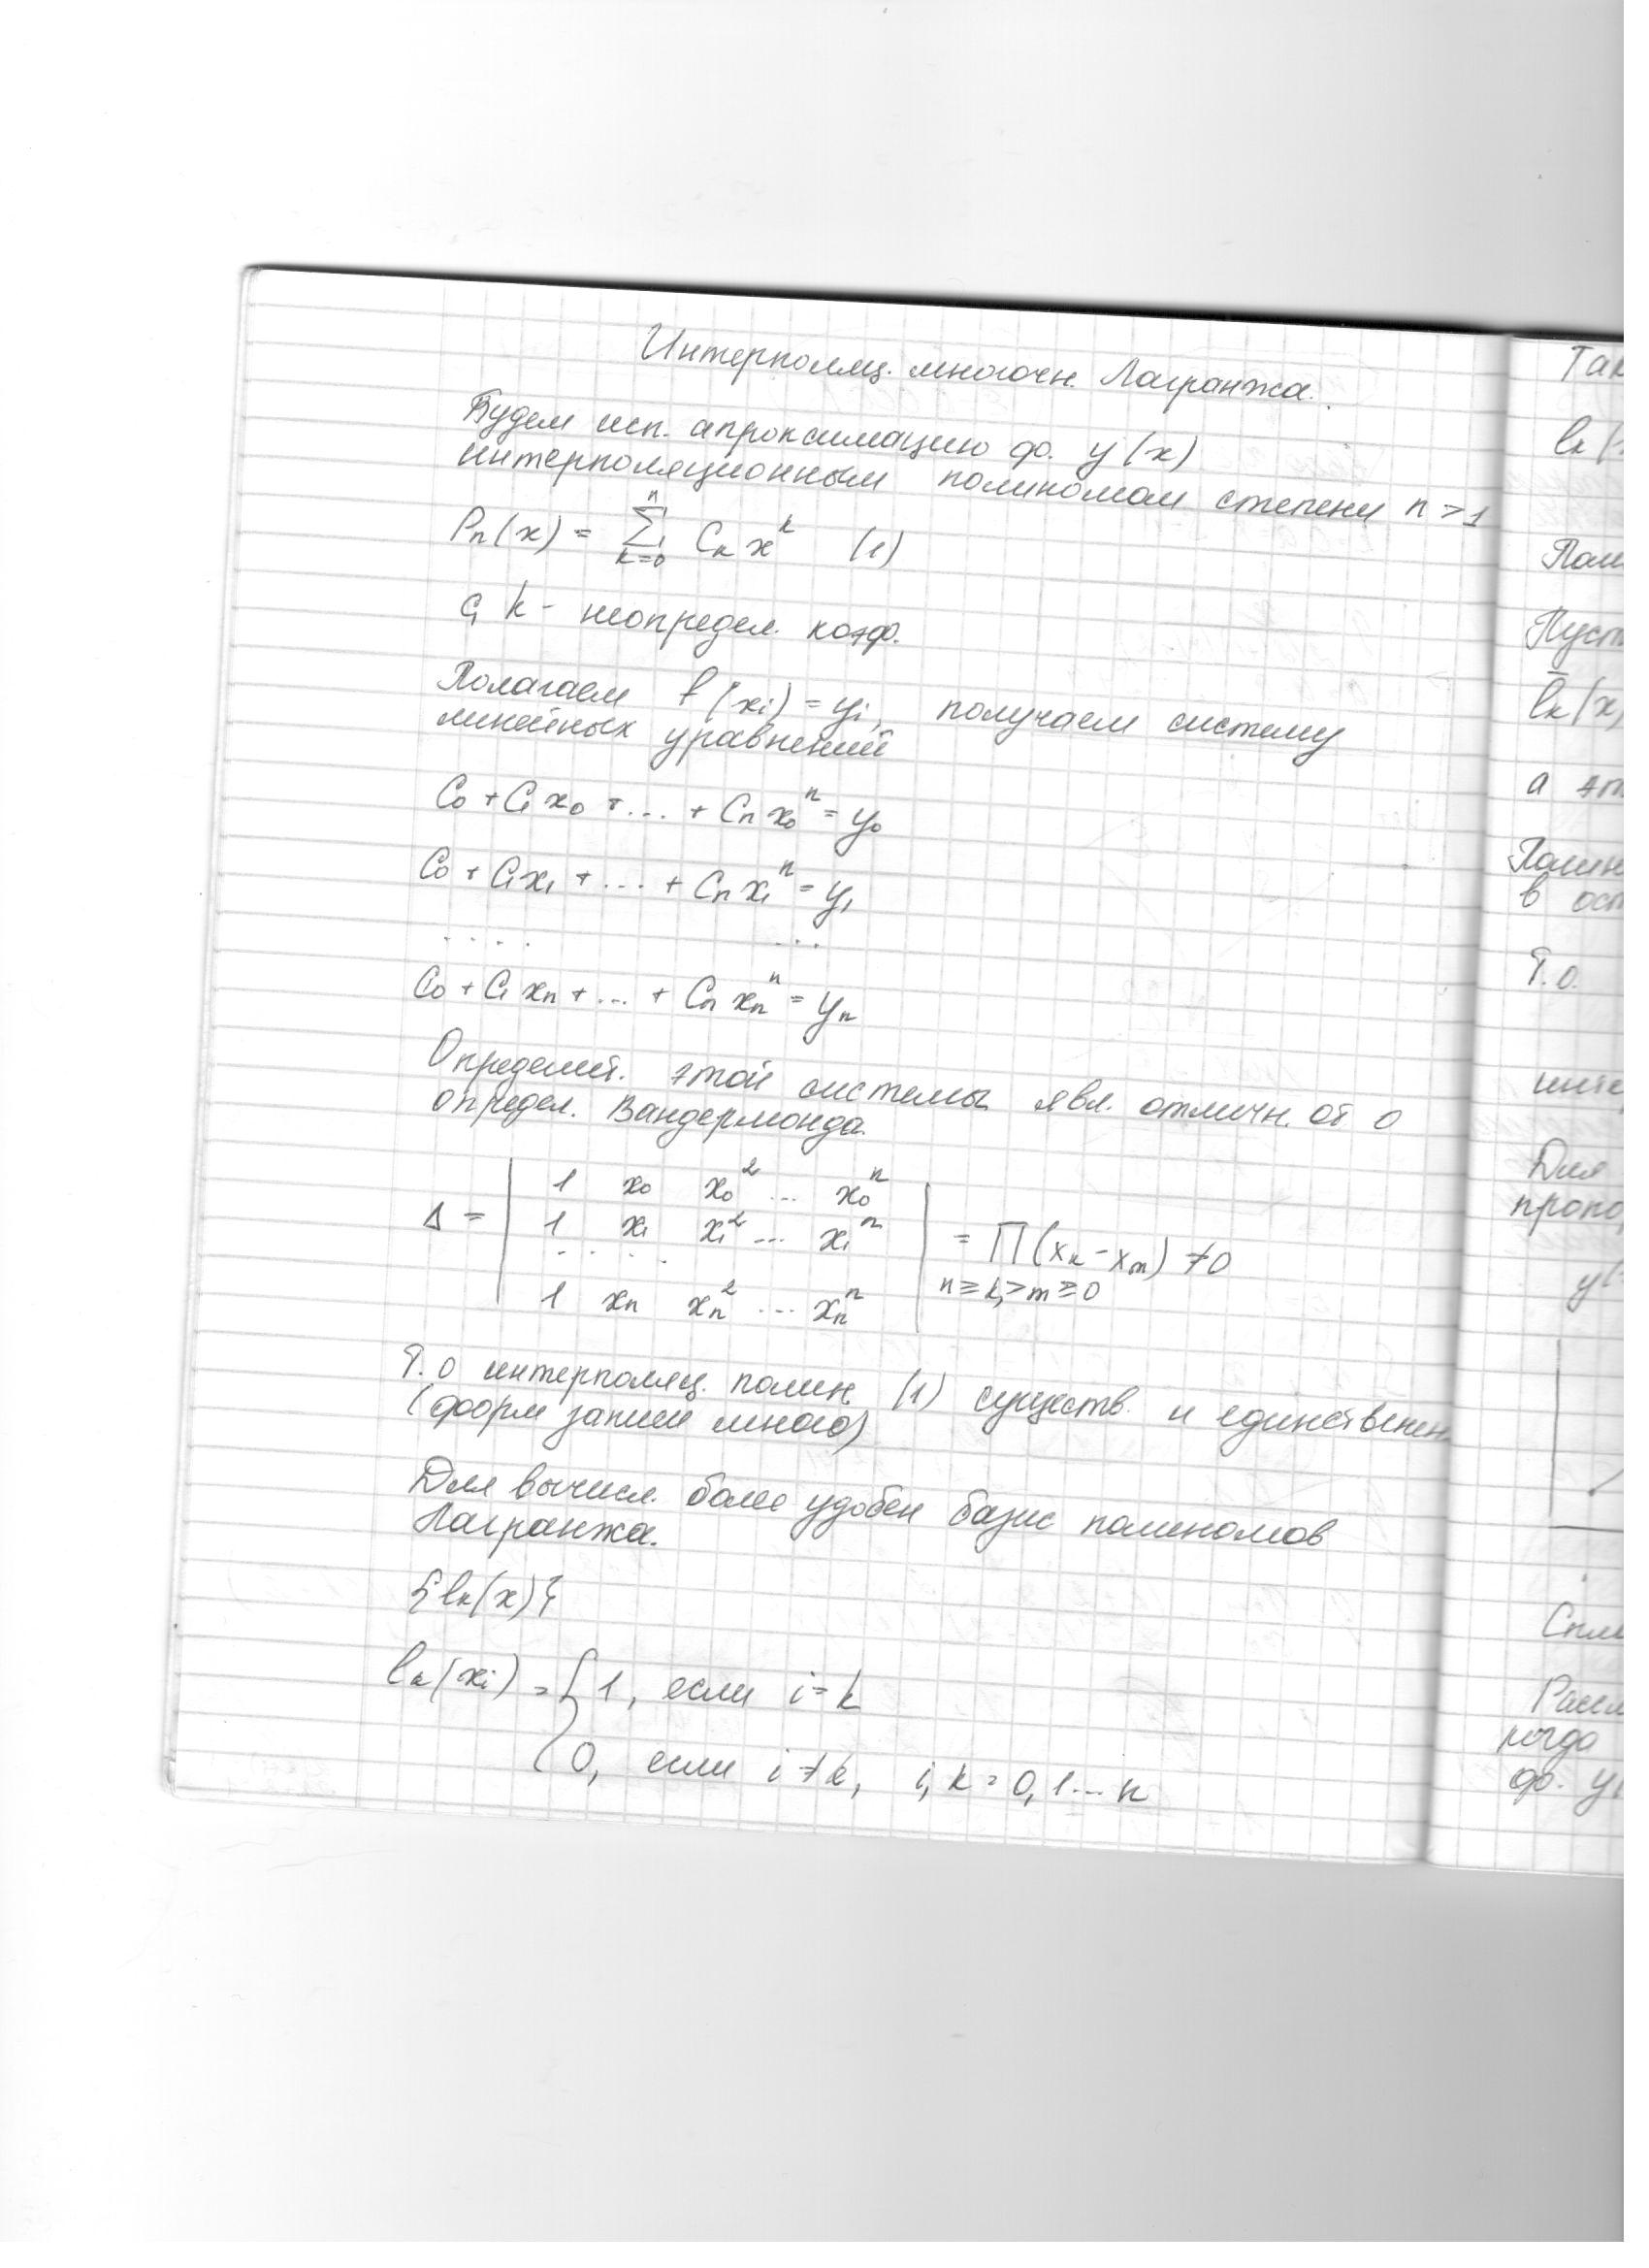 Интерполяц. многочн. Лагранжа.
Будем исп. апроксимацию ф. y(x)
интерполяционным полиномом степени n > 1
Pn(x) = ∑ (k=0..n) Cк x^k (1)
C, k - неопредел. коэф.
Полагаем f(xi) = yi, получаем систему
линейных уравнений
C0 + C1 x0 + ... + Cn x0^n = y0
C0 + C1 x1 + ... + Cn x1^n = y1
.... ...
C0 + C1 xn + ... + Cn xn^n = yn
Определит. этой системы явл. отличн. от 0
определ. Вандермонда.
1 x0 x0^2 ... x0^n
Δ = 1 x1 x1^2 ... x1^n = ∏(xк - xm) ≠ 0
.... n ≥ k > m ≥ 0
1 xn xn^2 ... xn^n
Т.о интерполяц. полин. (1) существ. и единственен
(форм записи много)
Для вычисл. более удобен базис полиномов
Лагранжа.
{lк(x)}
lк(xi) = { 1, если i = k
0, если i ≠ k, i, k = 0, 1 ... n
Так
lк(
Пол
Пуст
l̄к(x,
а эт
Полин
в ост
Т.о.
инте
Для
пропо
y(
Спл
Рассм
когда
ф. y(